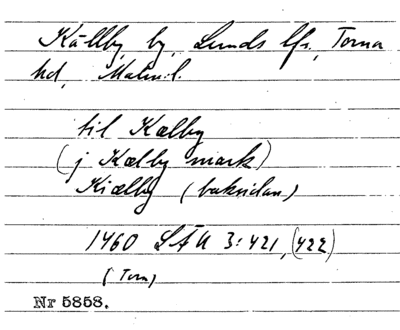 Källby by, Lunds lfs, Torna
hd, Malm.l.
til Kælby
(j Kælby mark)
Kiælby (baksidan)
1460 LÄU 3:421, (422)
(Torn)
Nr 5858.